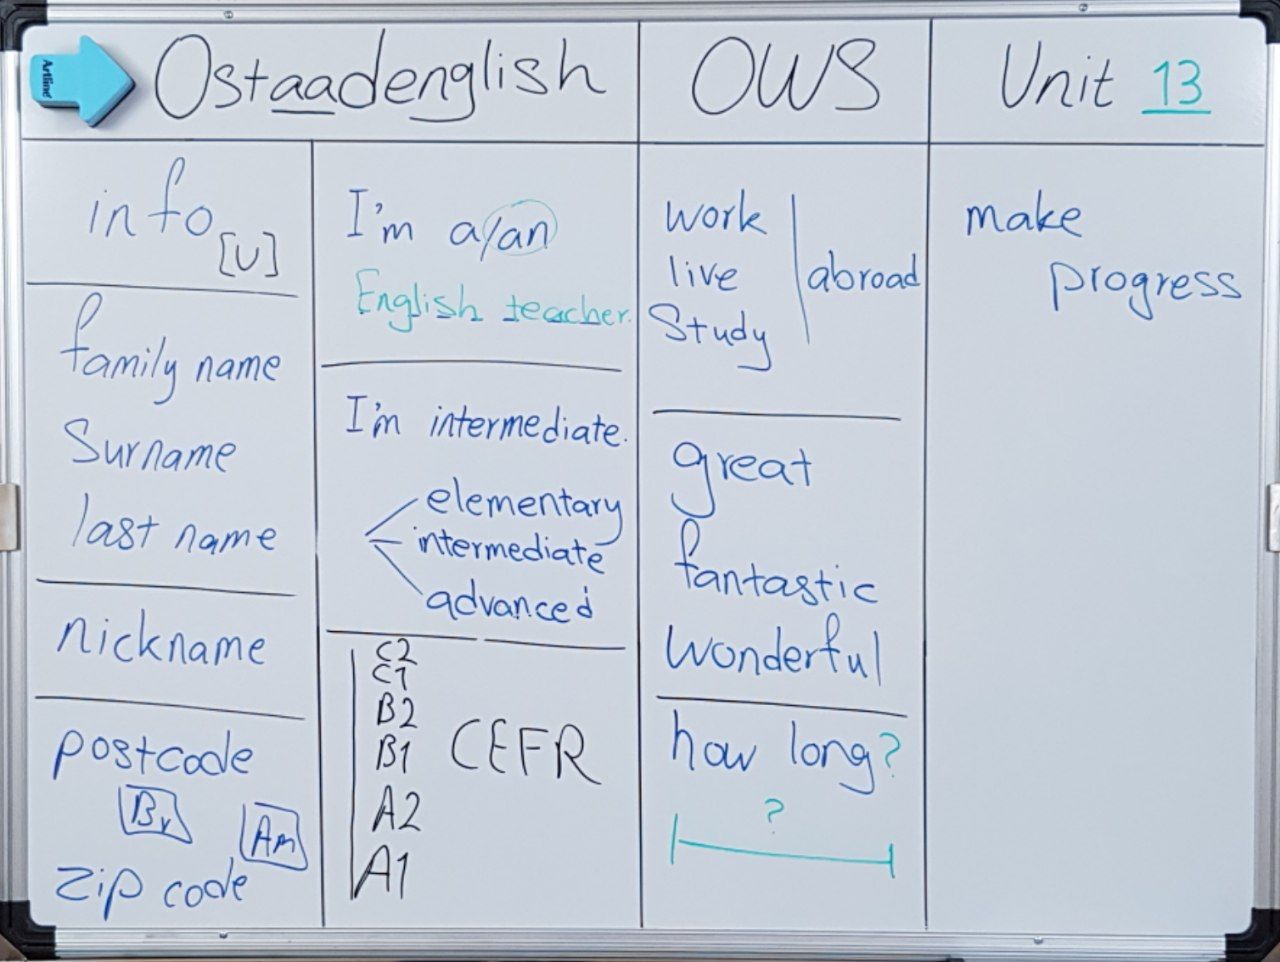 Ostaadenglish
OWS
Unit 13
Artline
info [U]
family name
Surname
last name
nickname
postcode
Br
Am
zip code
I'm a/an
English teacher.
I'm intermediate.
elementary
intermediate
advanced
C2
C1
B2
B1
A2
A1
CEFR
work
live
Study
abroad
great
fantastic
wonderful
how long?
?
make
progress